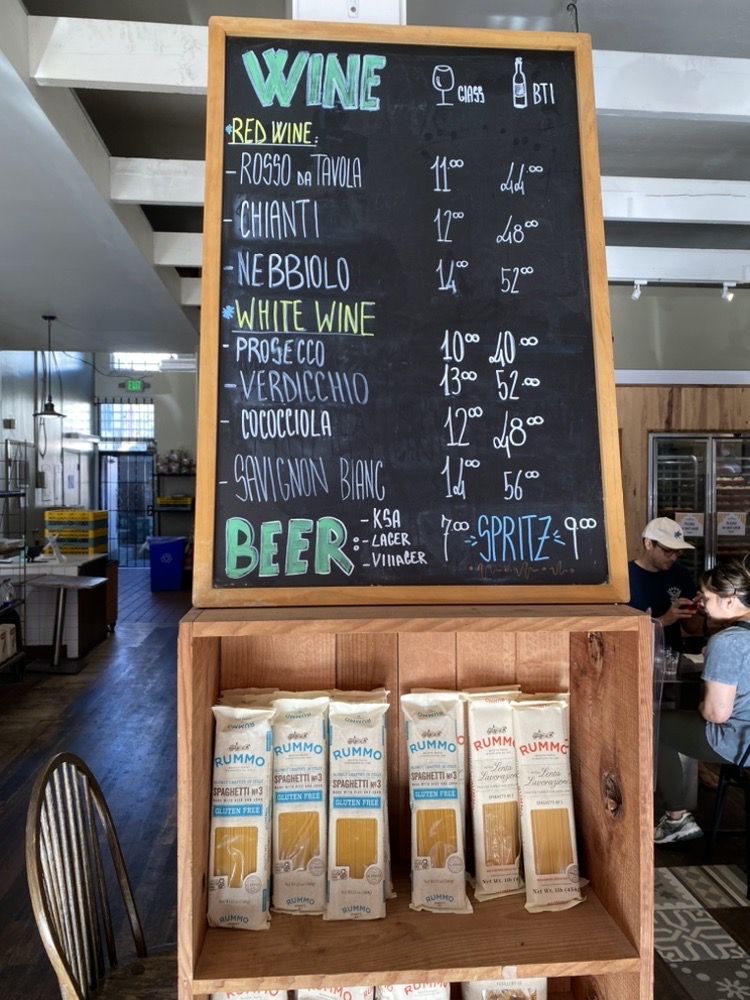 WINE GLASS BTL
*RED WINE:
- ROSSO DA TAVOLA 11.00 44.00
- CHIANTI 12.00 48.00
- NEBBIOLO 14.00 52.00
*WHITE WINE
- PROSECCO 10.00 40.00
- VERDICCHIO 13.00 52.00
- COCOCCIOLA 12.00 48.00
- SAVIGNON BIANC 14.00 56.00
BEER: - KSA 7.00 SPRITZ 9.00
- LAGER
- VIllAGER
EXIT
RUMMO
SPAGHETTI No3
GLUTEN FREE
RUMMO
RUMMO
SPAGHETTI No3
GLUTEN FREE
RUMMO
RUMMO
SPAGHETTI No3
MADE WITH RICE AND CORN
GLUTEN FREE
RUMMO
RUMMO
SPAGHETTI No3
GLUTEN FREE
RUMMO
RUMMO
Lenta Lavorazione
Net Wt. 1lb
RUMMO
Lenta Lavorazione
SPAGHETTI No3
Net Wt. 1lb (454g)
RUMMO